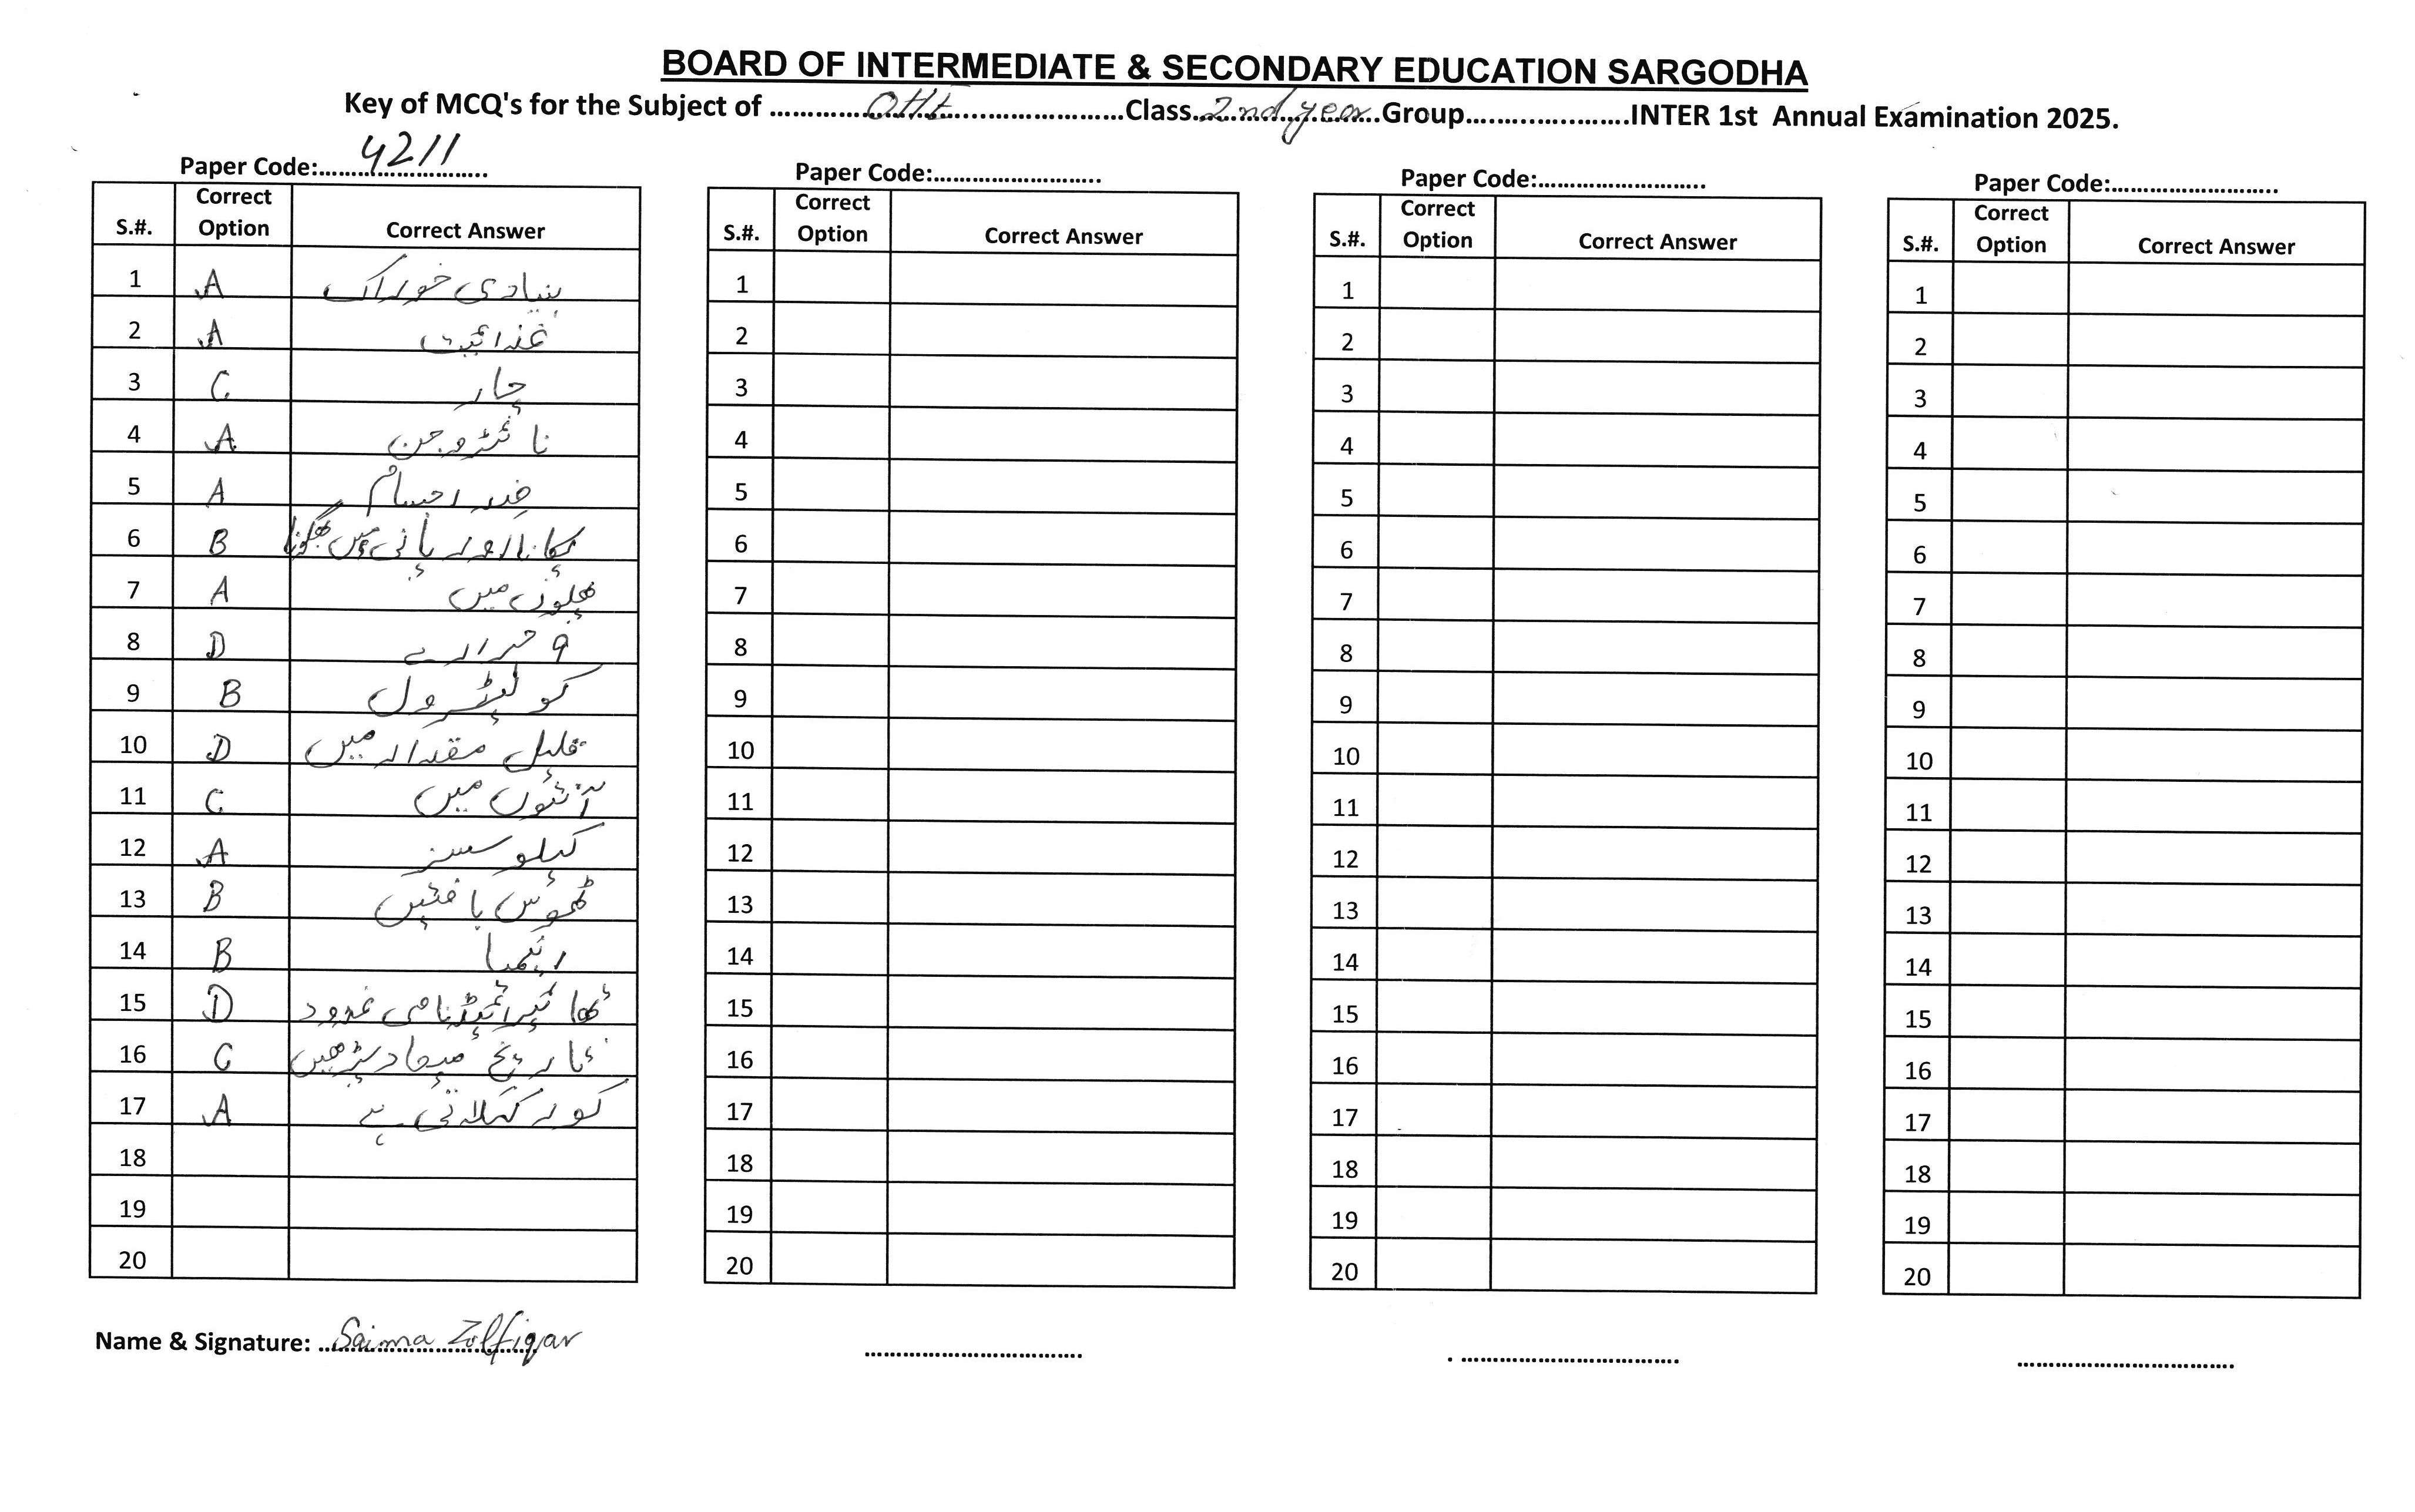 BOARD OF INTERMEDIATE & SECONDARY EDUCATION SARGODHA
Key of MCQ's for the Subject of OHE Class 2nd year Group INTER 1st Annual Examination 2025.
Paper Code: 4211
S.#. Correct Option Correct Answer
1 A بنیادی خوراک
2 A غذائیت
3 C چار
4 A نائٹروجن
5 A ضد اجسام
6 B پکانا اور پانی میں بھگونا
7 A پھلوں میں
8 D 9 حرارے
9 B کولیسٹرول
10 D قلیل مقدار میں
11 C آنتوں میں
12 A
13 B ٹھوس بافتیں
14 B انیمیا
15 D تھائیرائیڈ نامی غدود
16 C تاریخ میعاد پڑھیں
17 A کور کہلاتی ہے
18
19
20
Name & Signature: Saima Zolfiqar
Paper Code:
S.#. Correct Option Correct Answer
1
2
3
4
5
6
7
8
9
10
11
12
13
14
15
16
17
18
19
20
Paper Code:
S.#. Correct Option Correct Answer
1
2
3
4
5
6
7
8
9
10
11
12
13
14
15
16
17
18
19
20
Paper Code:
S.#. Correct Option Correct Answer
1
2
3
4
5
6
7
8
9
10
11
12
13
14
15
16
17
18
19
20